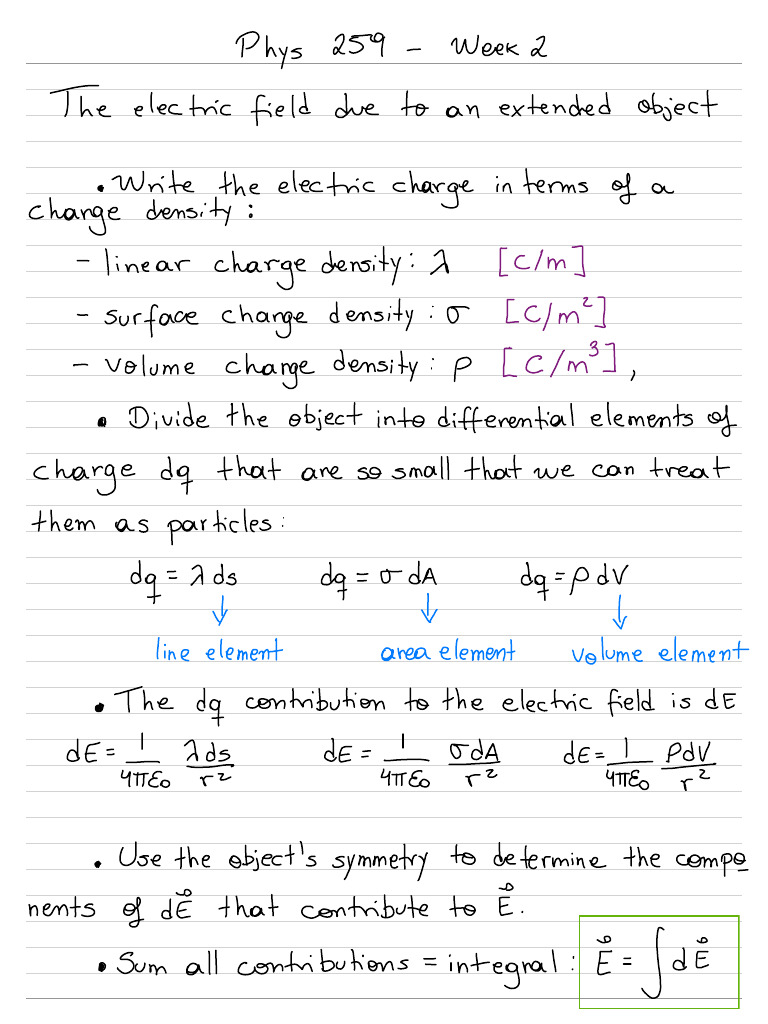 Phys 259 - Week 2
The electric field due to an extended object
• Write the electric charge in terms of a
charge density:
- linear charge density: λ [C/m]
- surface charge density: σ [C/m²]
- volume charge density: ρ [C/m³],
• Divide the object into differential elements of
charge dq that are so small that we can treat
them as particles:
dq = λ ds dq = σ dA dq = ρ dV
↓ ↓ ↓
line element area element volume element
• The dq contribution to the electric field is dE
dE = 1/4πε₀ λds/r² dE = 1/4πε₀ σdA/r² dE = 1/4πε₀ ρdV/r²
• Use the object's symmetry to determine the compo
nents of dE⃗ that contribute to E⃗.
• Sum all contributions = integral: E⃗ = ∫ dE⃗